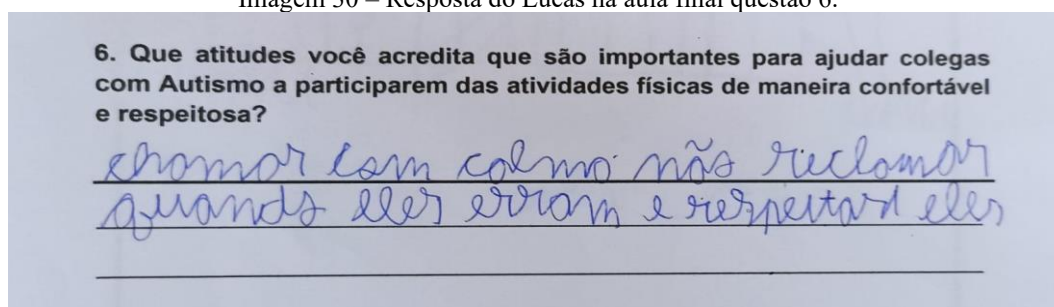 Imagem 30 – Resposta do Lucas na aula final questão 6.
6. Que atitudes você acredita que são importantes para ajudar colegas
com Autismo a participarem das atividades físicas de maneira confortável
e respeitosa?
chamar com calma não reclamar
quando eles erram e respeitard eles